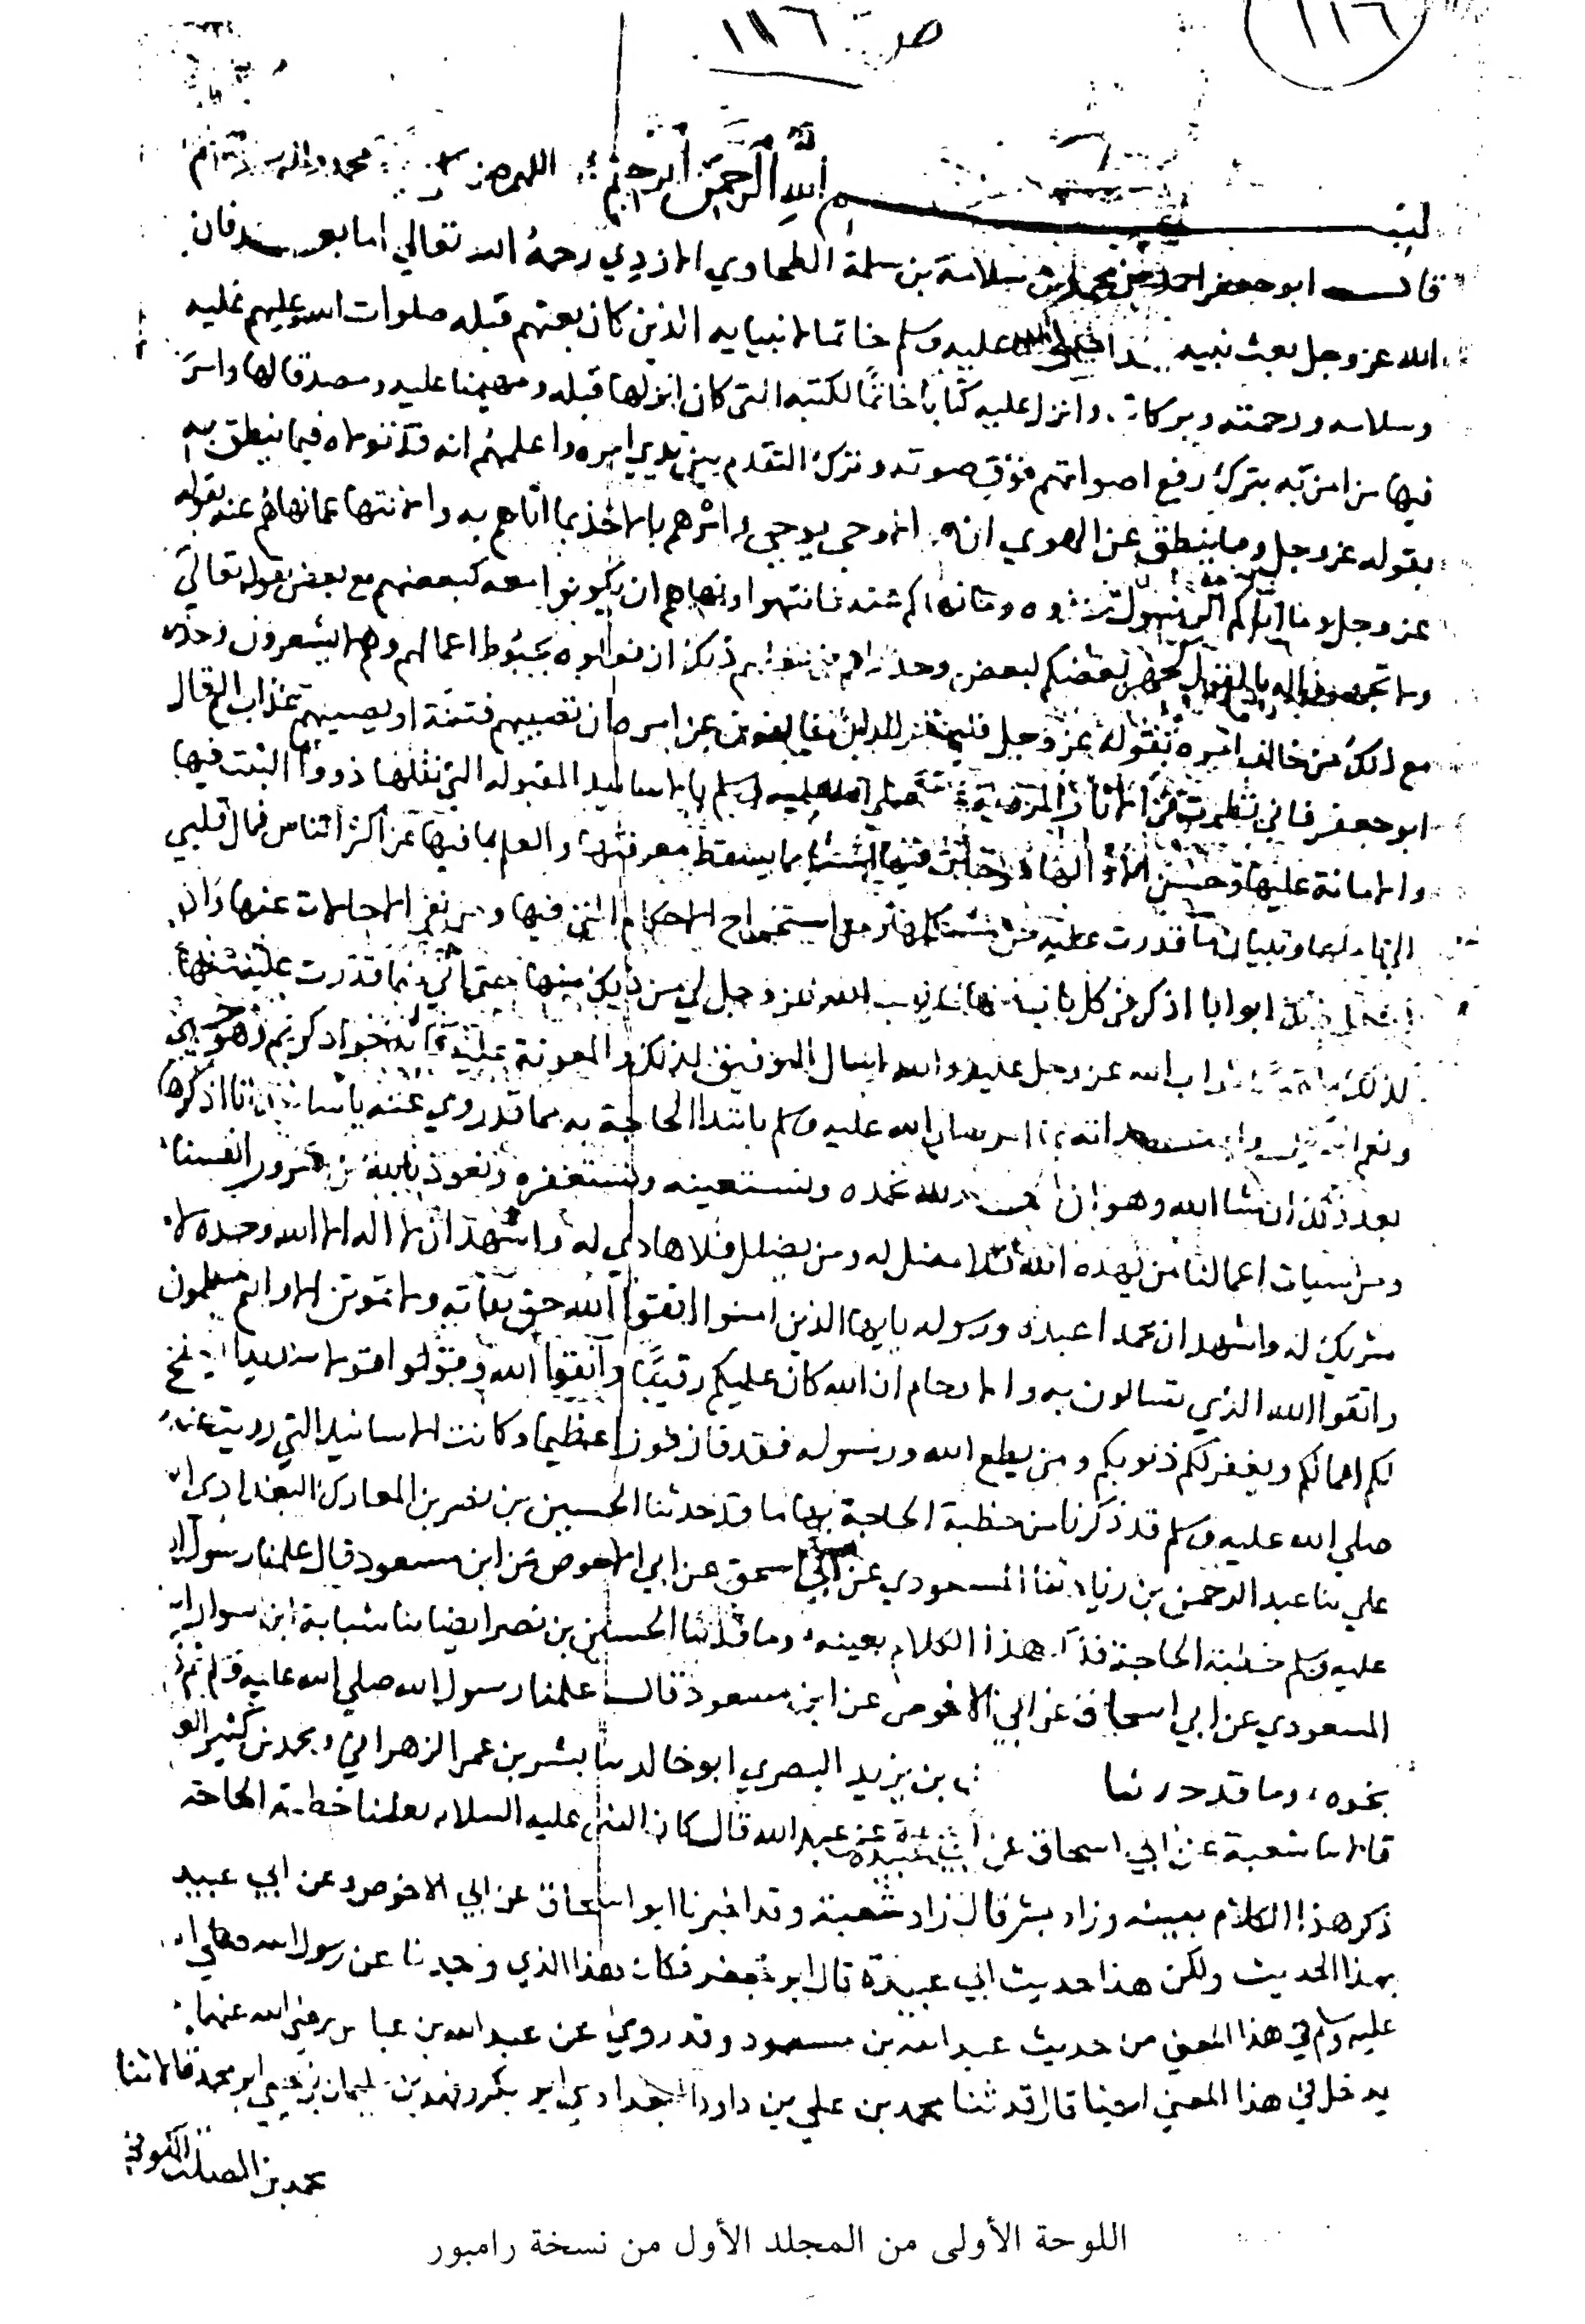 ١١٦
صـ ١١٦
بسم الله الرحمن الرحيم اللهم صل محمد واله
قال ابو جعفر احمد بن محمد بن سلامة بن سلمة الطحاوي الازدي رحمه الله تعالي اما بعد فان
الله عز وجل بعث نبيه محمدا صلى الله عليه وسلم خاتما لانبيايه الذين كان بعثهم قبله صلوات الله عليهم عليه
وسلامه ورحمته وبركاته وانزل عليه كتابا خاتمًا لكتبه التي كان انزلها قبله ومهيمنا عليه ومصدقا لها وامر
فيها من امن به بترك رفع اصواتهم فوق صوته وترك التقدم بين يدي امره واعلمهم انه قد تولاه فيما ينطق به
بقوله عز وجل وما ينطق عن الهوي ان هو الا وحي يوحي وامرهم بالاخذ بما اتاهم به والانتها عما نهاهم عنه بقوله
عز وجل وما اتاكم الرسول فخذوه وما نهاكم عنه فانتهوا ونهاهم ان يكونوا معه كبعضهم مع بعض بقوله تعالي
ولا تجهروا له بالقول كجهر بعضكم لبعض وحذرهم في ذلك ان فعلوه بحبوط اعمالهم وهم لا يشعرون وحذر
مع ذلك من خالف امره بقوله عز وجل فليحذر الذين يخالفون عن امره ان تصيبهم فتنة او يصيبهم عذاب اليم قال
ابو جعفر فاني نظرت في الاثار المروية عنه صلى الله عليه وسلم بالاسانيد المقبولة التي نقلها ذووا التثبت فيها
والامانة عليها وحسن الادا لها فوجدت فيها اشيا مما يسقط معرفتها والعلم بما فيها عن اكثر الناس فمال قلبي
الي تاملها وتبيان ما قدرت عليه من مشكلها ومن استخراج الاحكام التي فيها ومن نفي الاحالات عنها وان
اجعل ذلك ابوابا اذكر في كل باب منها ما يهب الله عز وجل لي من ذلك منها حتى اتي فيما قدرت عليه منها
كذلك ملتمسا ثواب الله عز وجل عليه والله اسال التوفيق لذلك والمعونة عليه فانه جواد كريم وهو حسبي
ونعم الوكيل وابتدأته بما امر صلى الله عليه وسلم بابتدا الحاجة به مما قد روي عنه باسانيد انا اذكرها
بعد ذلك ان شا الله وهو ان الحمد لله نحمده ونستعينه ونستغفره ونعوذ بالله من شرور انفسنا
ومن سيات اعمالنا من يهده الله فلا مضل له ومن يضلل فلا هادي له واشهد ان لا اله الا الله وحده لا
شريك له واشهد ان محمدا عبده ورسوله يا يها الذين امنوا اتقوا الله حق تقاته ولا تموتن الا وانتم مسلمون
واتقوا الله الذي تسالون به والارحام ان الله كان عليكم رقيبًا واتقوا الله وقولوا قولا سديدا يصلح
لكم اعمالكم ويغفر لكم ذنوبكم ومن يطع الله ورسوله فقد فاز فوزا عظيما وكانت الاسانيد التي رويت عنه
صلي الله عليه وسلم قد ذكرنا من خطبة الحاجة بها ما قد حدثنا الحسين بن نصر بن المعارك البغدادي
علي ثنا عبد الرحمن بن زياد ثنا المسعودي عن ابي اسحق عن ابي الاحوص عن ابن مسعود قال علمنا رسول الله
عليه وسلم خطبة الحاجة فذكر هذا الكلام بعينه وما قد ثنا الحسين بن نصر ايضا ثنا شبابة ابن سوار
المسعودي عن ابي اسحاق عن ابي الاحوص عن ابن مسعود قال علمنا رسول الله صلي الله عليه وسلم ثم ذكر
نحوه وما قد حدثنا بن يزيد البصري ابو خالد ثنا بشر بن عمر الزهراني ومحمد بن كثير
قالا ثنا شعبة عن ابي اسحاق عن ابي عبيدة عن عبد الله قال كان النبي عليه السلام يعلمنا خطبة الحاجة
ذكر هذا الكلام بعينه وزاد بشر قال زاد شعبة وقد اخبرنا ابو اسحاق عن ابي الاحوص وعن ابي عبيدة
بهذا الحديث ولكن هذا حديث ابي عبيدة قال ابو جعفر فكان هذا الذي وجدنا عن رسول الله صلي الله
عليه وسلم في هذا المعني من حديث عبد الله بن مسعود وقد روي عن عبد الله بن عباس رضي الله عنهما
يدخل في هذا المعني ايضا ما قد ثنا محمد بن علي بن داود البغدادي ابو بكر وفهد بن سليمان بن يحيي ابو محمد قالا ثنا
محمد بن الصلت الكوفي
اللوحة الأولى من المجلد الأول من نسخة رامبور